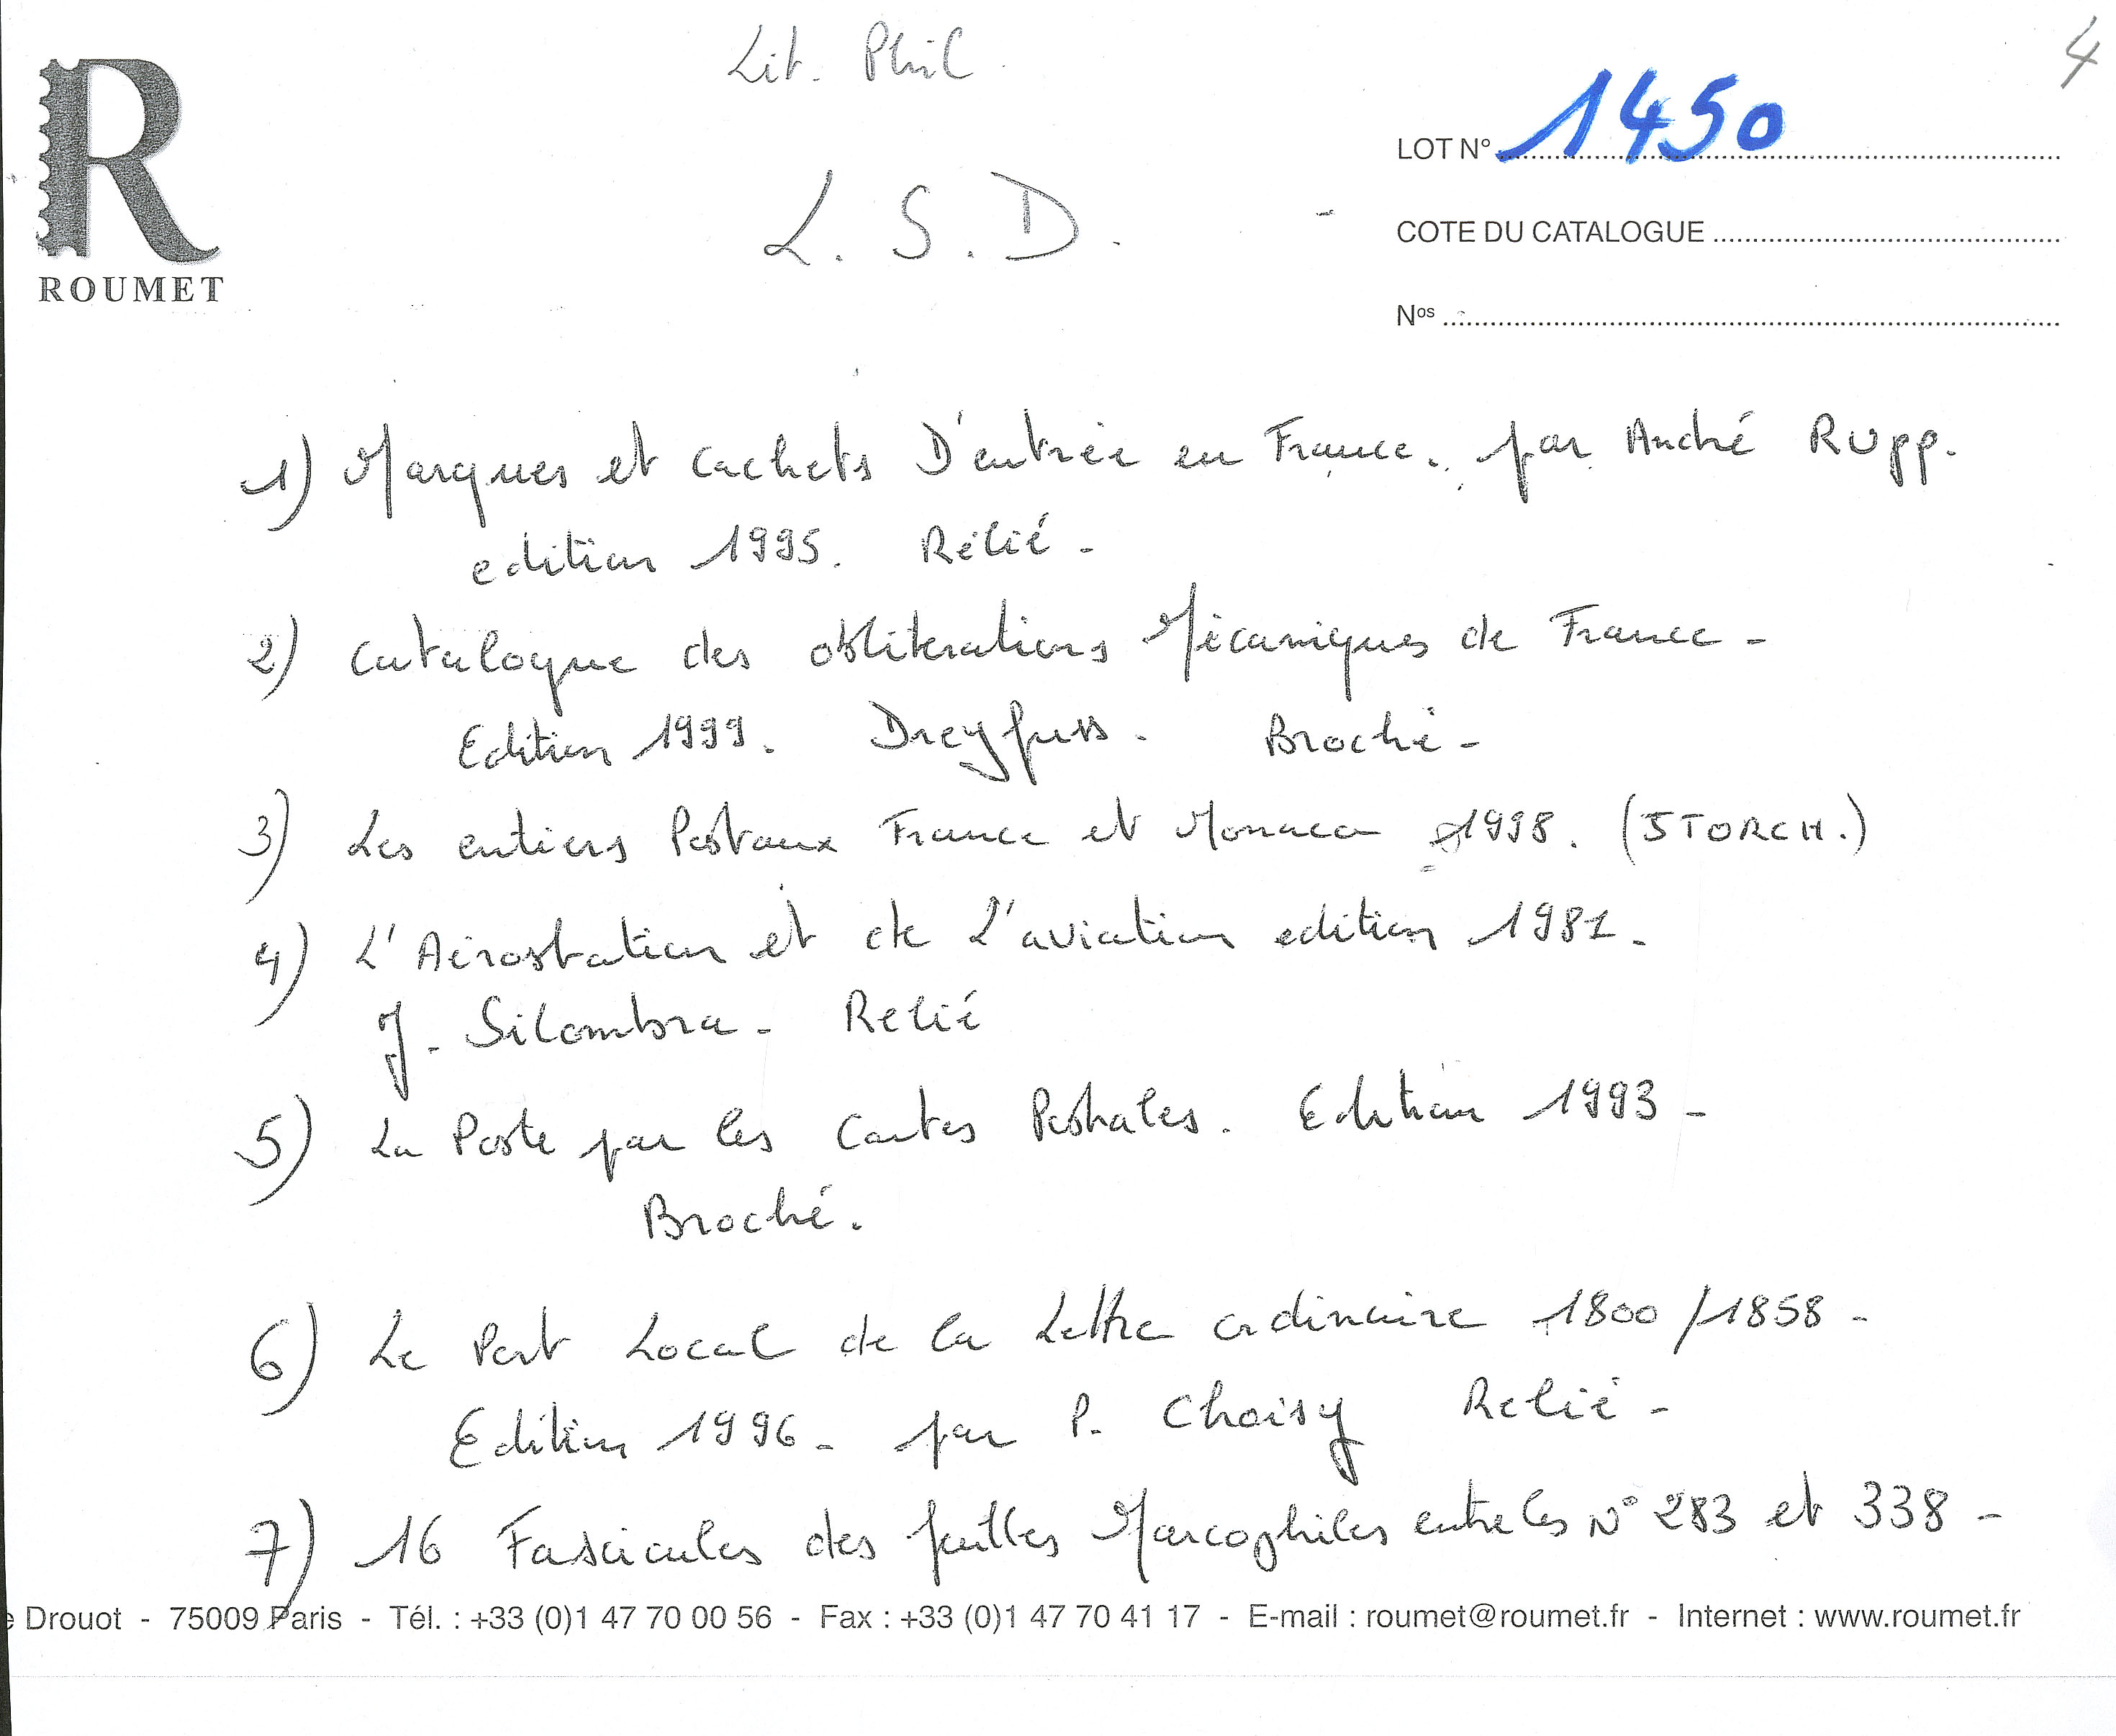 Lit. Phil.
4
R
ROUMET
LOT N° 1450
L. S. D.
COTE DU CATALOGUE
Nos
1) Marques et cachets D'entrée en France. par André Rupp.
edition 1995. Rélié -
2) Catalogue des obliterations Mécaniques de France -
Edition 1999. Dreyfuss. Broché -
3) Les entiers Postaux France et Monaco 1998. (STORCH.)
4) L'Aérostation et de L'aviation edition 1981 -
J. Silombra - Relié
5) La Poste par les Cartes Postales. Edition 1993 -
Broché.
6) Le Port Local de la Lettre ordinaire 1800/1858 -
Edition 1996 - par P. Choisy Relié -
7) 16 Fascicules des feuilles Marcophiles entre les N° 283 et 338 -
e Drouot - 75009 Paris - Tél. : +33 (0)1 47 70 00 56 - Fax : +33 (0)1 47 70 41 17 - E-mail : roumet@roumet.fr - Internet : www.roumet.fr